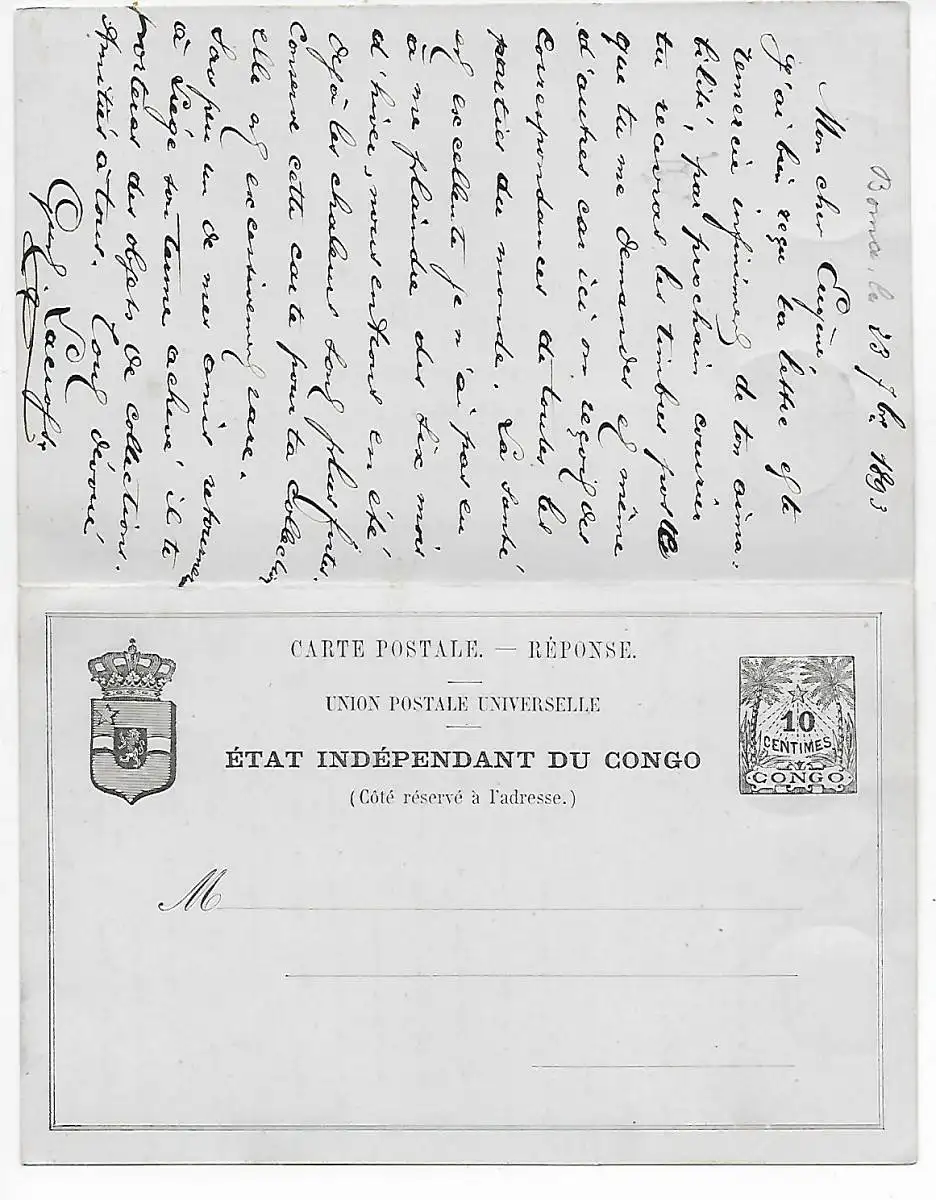 Boma, le 23 7bre 1893
Mon cher Eugène,
J'ai bien reçu ta lettre & te
remercie infiniment de ton aima-
bilité, par prochain courrier
tu recevras les timbres poste
que tu me demandes et même
d'autres car ici on reçoit des
correspondances de toutes les
parties du monde. La santé
est excellente je n'ai pas eu
à me plaindre des six mois
d'hiver, nous entrons en été
déjà les chaleurs sont plus fortes.
Conserve cette carte pour ta collection
elle est excessivement rare.
Sous peu un de mes amis retourne
à Liége son terme achevé il te
portera des objets de collections.
Amitiés à tous. Tout dévoué
CARTE POSTALE. — RÉPONSE.
UNION POSTALE UNIVERSELLE
ÉTAT INDÉPENDANT DU CONGO
(Côté réservé à l'adresse.)
10
CENTIMES
CONGO
M